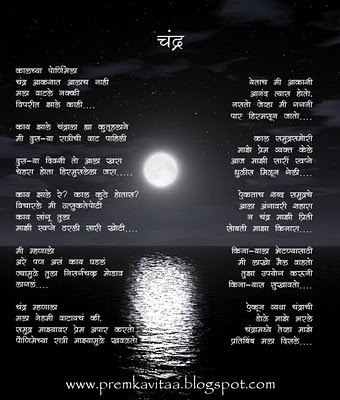 चंद्र
कालच्या पोर्णिमेला
चंद्र आकाशात आलाच नाही
मला वाटले नक्की
विपरीत झाले काही....
काय झाले चंद्राला ह्या कुतूहलाने
मी दुस-या रात्रीची वाट पाहिली
दुस-या दिवशी तो आला खरा
चेहरा होता हिरमुसलेला जरा.....
काय झाले रे? काल कुठे होतास?
विचारले मी उत्सुकतेपोटी
काय सांगू तुला
माझी स्वप्ने ठरली सारी खोटी....
मी म्हणालो
अरे पण असं काय घडलं
ज्यामुळे तुला निसर्गचक्र मोडाव
लागलं....
चंद्र म्हणाला
मला नेहमी वाटायचं की,
समुद्र माझ्यावर प्रेम अपार करतो
पौर्णिमेच्या रात्री माझ्यामुळे खवळतो
येताच मी आकाशी
आनंद त्यास होतो,
नसतो जेव्हा मी गगनी
पार हिरमसून जातो....
काल समुद्रासमोरी
माझे प्रेम व्यक्त केले
आज माझी सारी स्वप्ने
धुळीस मिळून गेली....
ऐकताच शब्द समुद्राचे
आला अंगावरी शहारा
न चंद्र माझी प्रिती
सोबती माझा किनारा....
किना-याला भेटण्यासाठी
मी लाखो मैल वाहतो
तुझा उपयोग करूनी
किना-यास सुखावतो....
ऐकून व्यथा चंद्राची
डोळे माझे भरले
चंद्रामध्ये तेव्हा माझे
प्रतिबिंब मला दिसले....
www.premkavitaa.blogspot.com